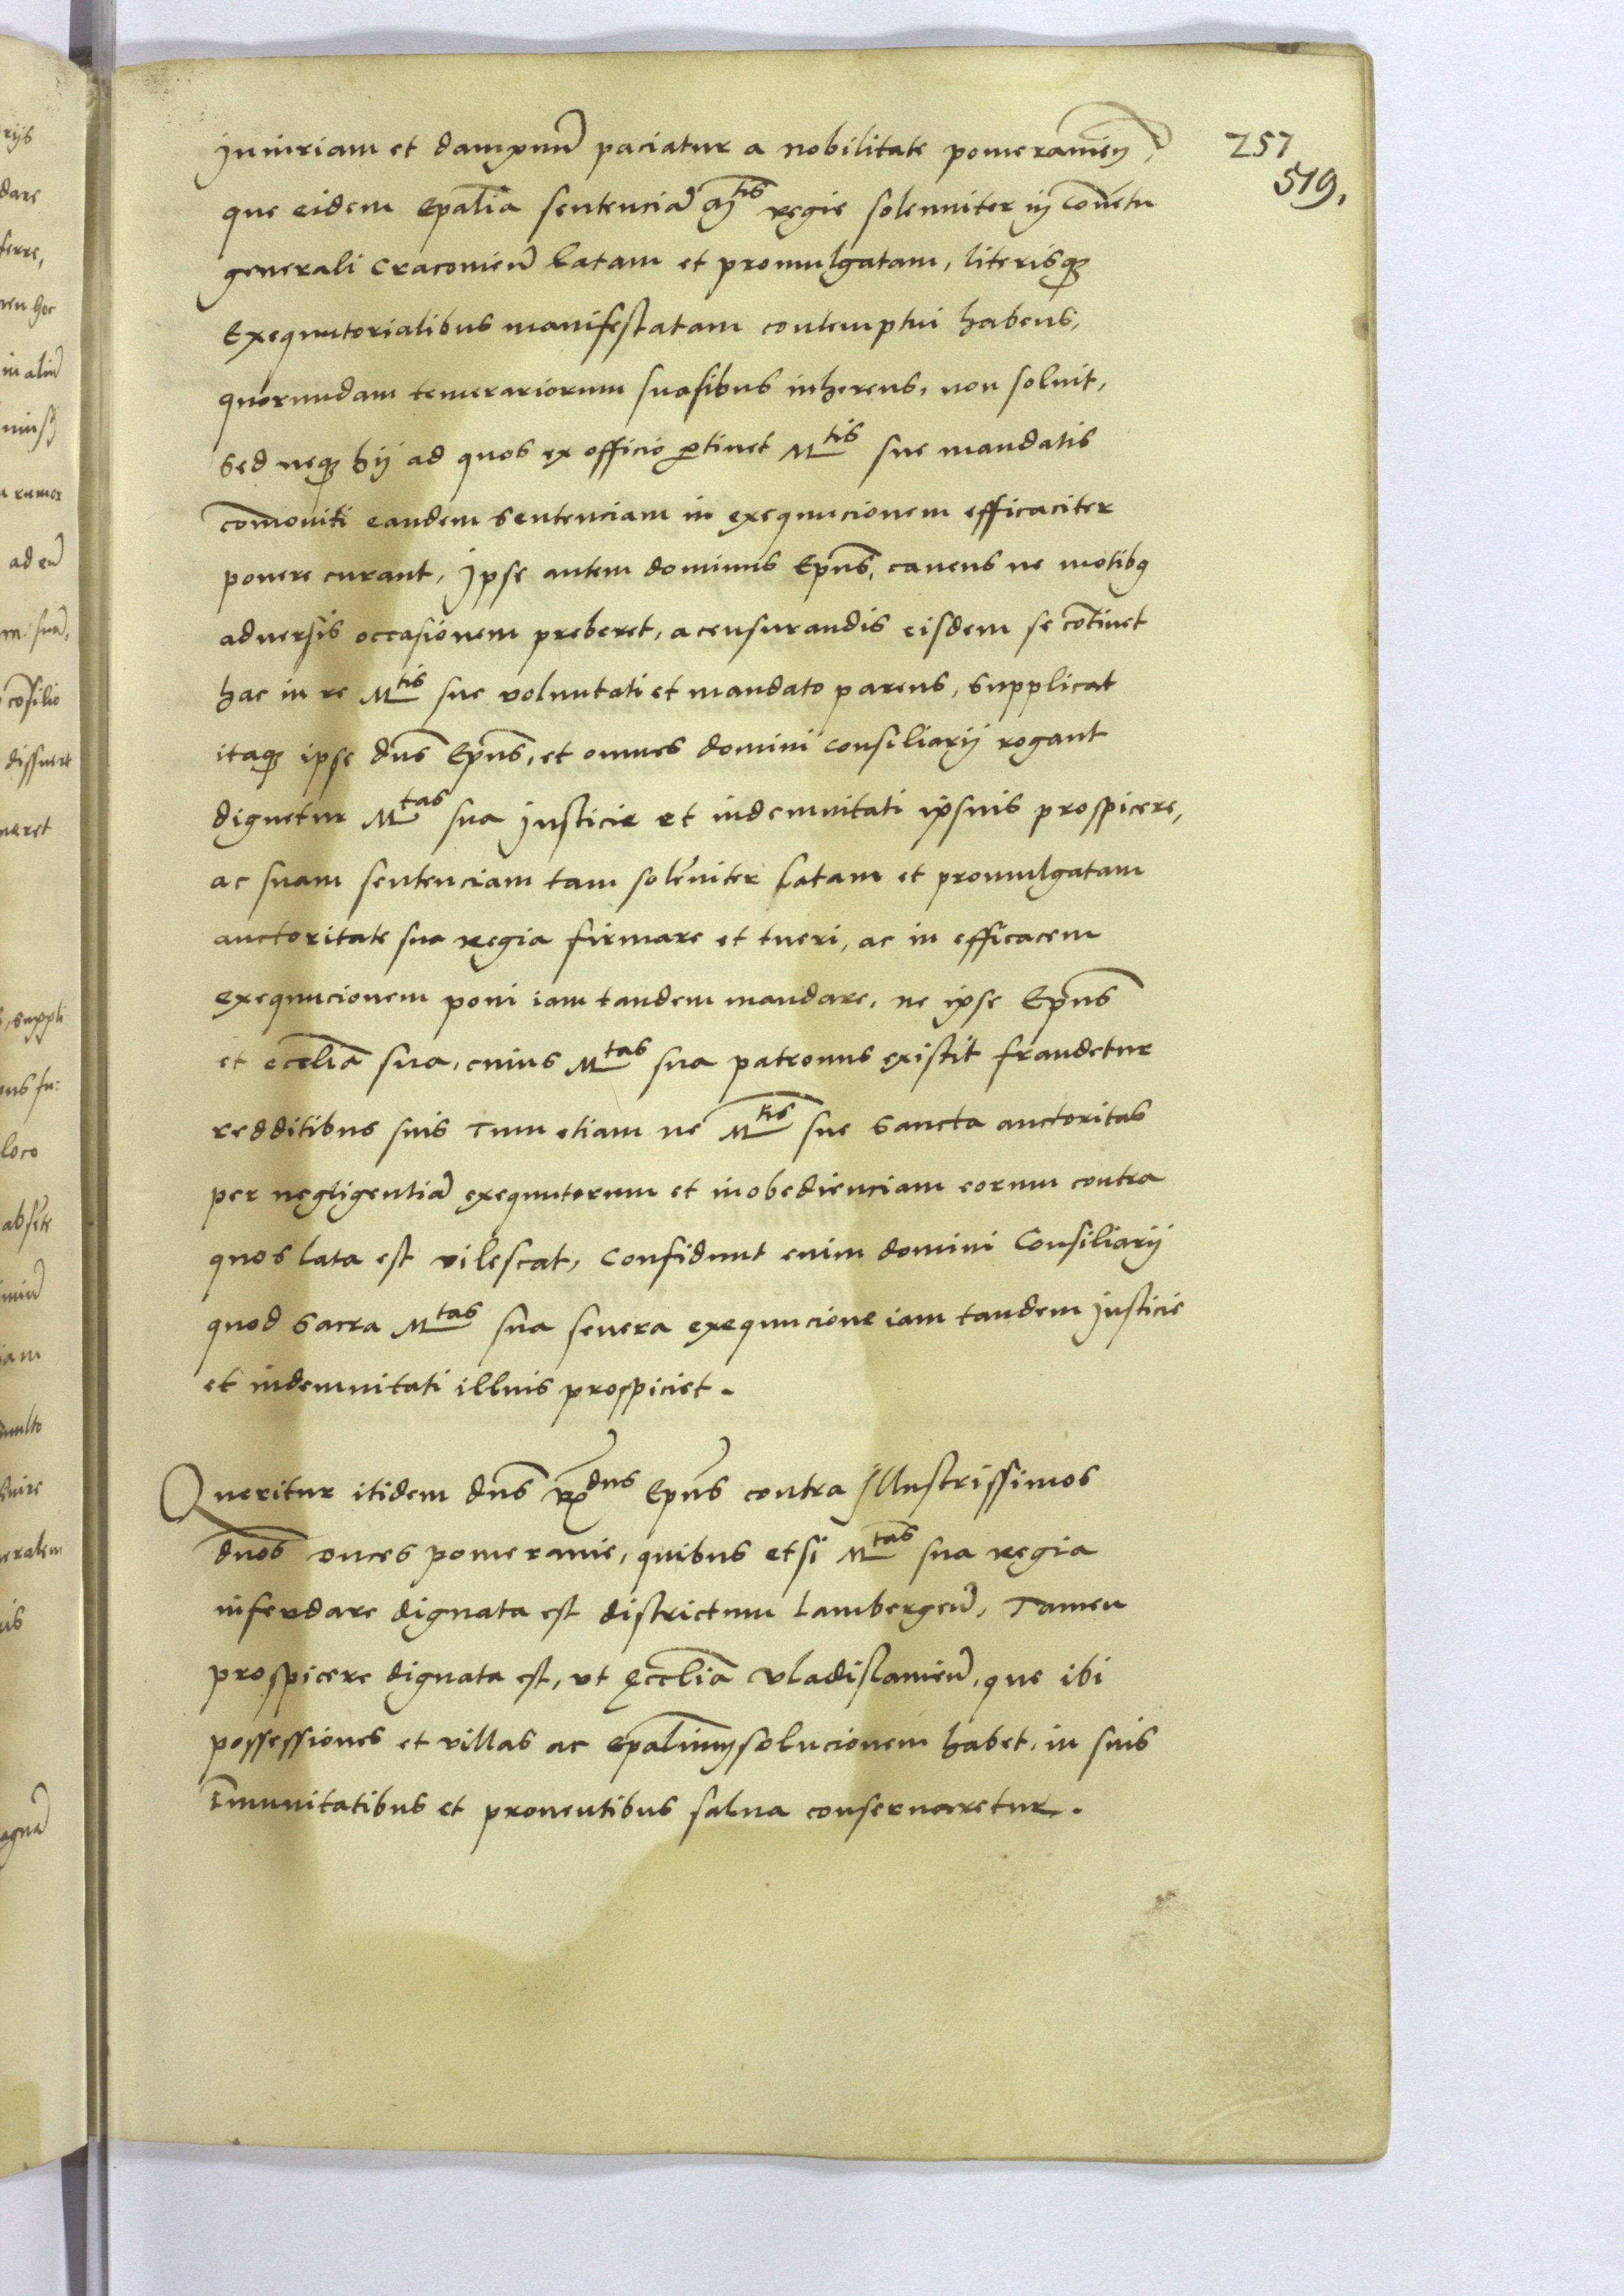 257
519.
iniuriam et dampnũ paciatur a nobilitate pomeranieñ,
que eidem Ep̃alia sentenciã Mtis regie solenniter in Cõuẽtu
generali Craconieñ latam et promulgatam, literisq;
Exequutorialibus manifestatam contemptui habens,
quorundam temerariorum suasibus inherens, non soluit,
Sed neq; hij ad quos ex officio ꝑtinet Mtis sue mandatis
com̃oniti eandem Sentenciam in exequucionem efficaciter
ponere curant, Ipse autem dominus Ep̃us, cauens ne motibꝰ
aduersis occasionem preberet, a censurandis eisdem se cõtinet
hac in re Mtis sue voluntati et mandato parens, Supplicat
itaq; ipse dñs Ep̃us, et omnes domini consiliarij rogant
dignetur Mtas sua Justicie et indemnitati ipsius prospicere,
ac suam sentenciam tam solẽniter latam et promulgatam
auctoritate sua regia firmare et tueri, ac in efficacem
exequucionem poni iam tandem mandare, ne ipse Ep̃us
et ecc̃lia sua, cuius Mtas sua patronus existit fraudetur
redditibus suis Tum etiam ne Mtis sue Sancta auctoritas
per negligentiã exequutorum et inobedienciam eorum contra
quos lata est vilescat, Confidunt enim domini Consiliarij
quod Sacra Mtas sua seuera exequucione iam tandem Justicie
et indemnitati illius prospiciet.
Queritur itidem dñs Rdus Ep̃us contra Illustrissimos
dños duces pomeranie, quibus etsi Mtas sua regia
infeudare dignata est districtum Lambergeñ, Tamen
prospicere dignata est, vt Ecc̃lia Vladislauieñ, que ibi
possessiones et villas ac ep̃alium solucionem habet, in suis
im̃unitatibus et prouentibus salua conseruaretur.